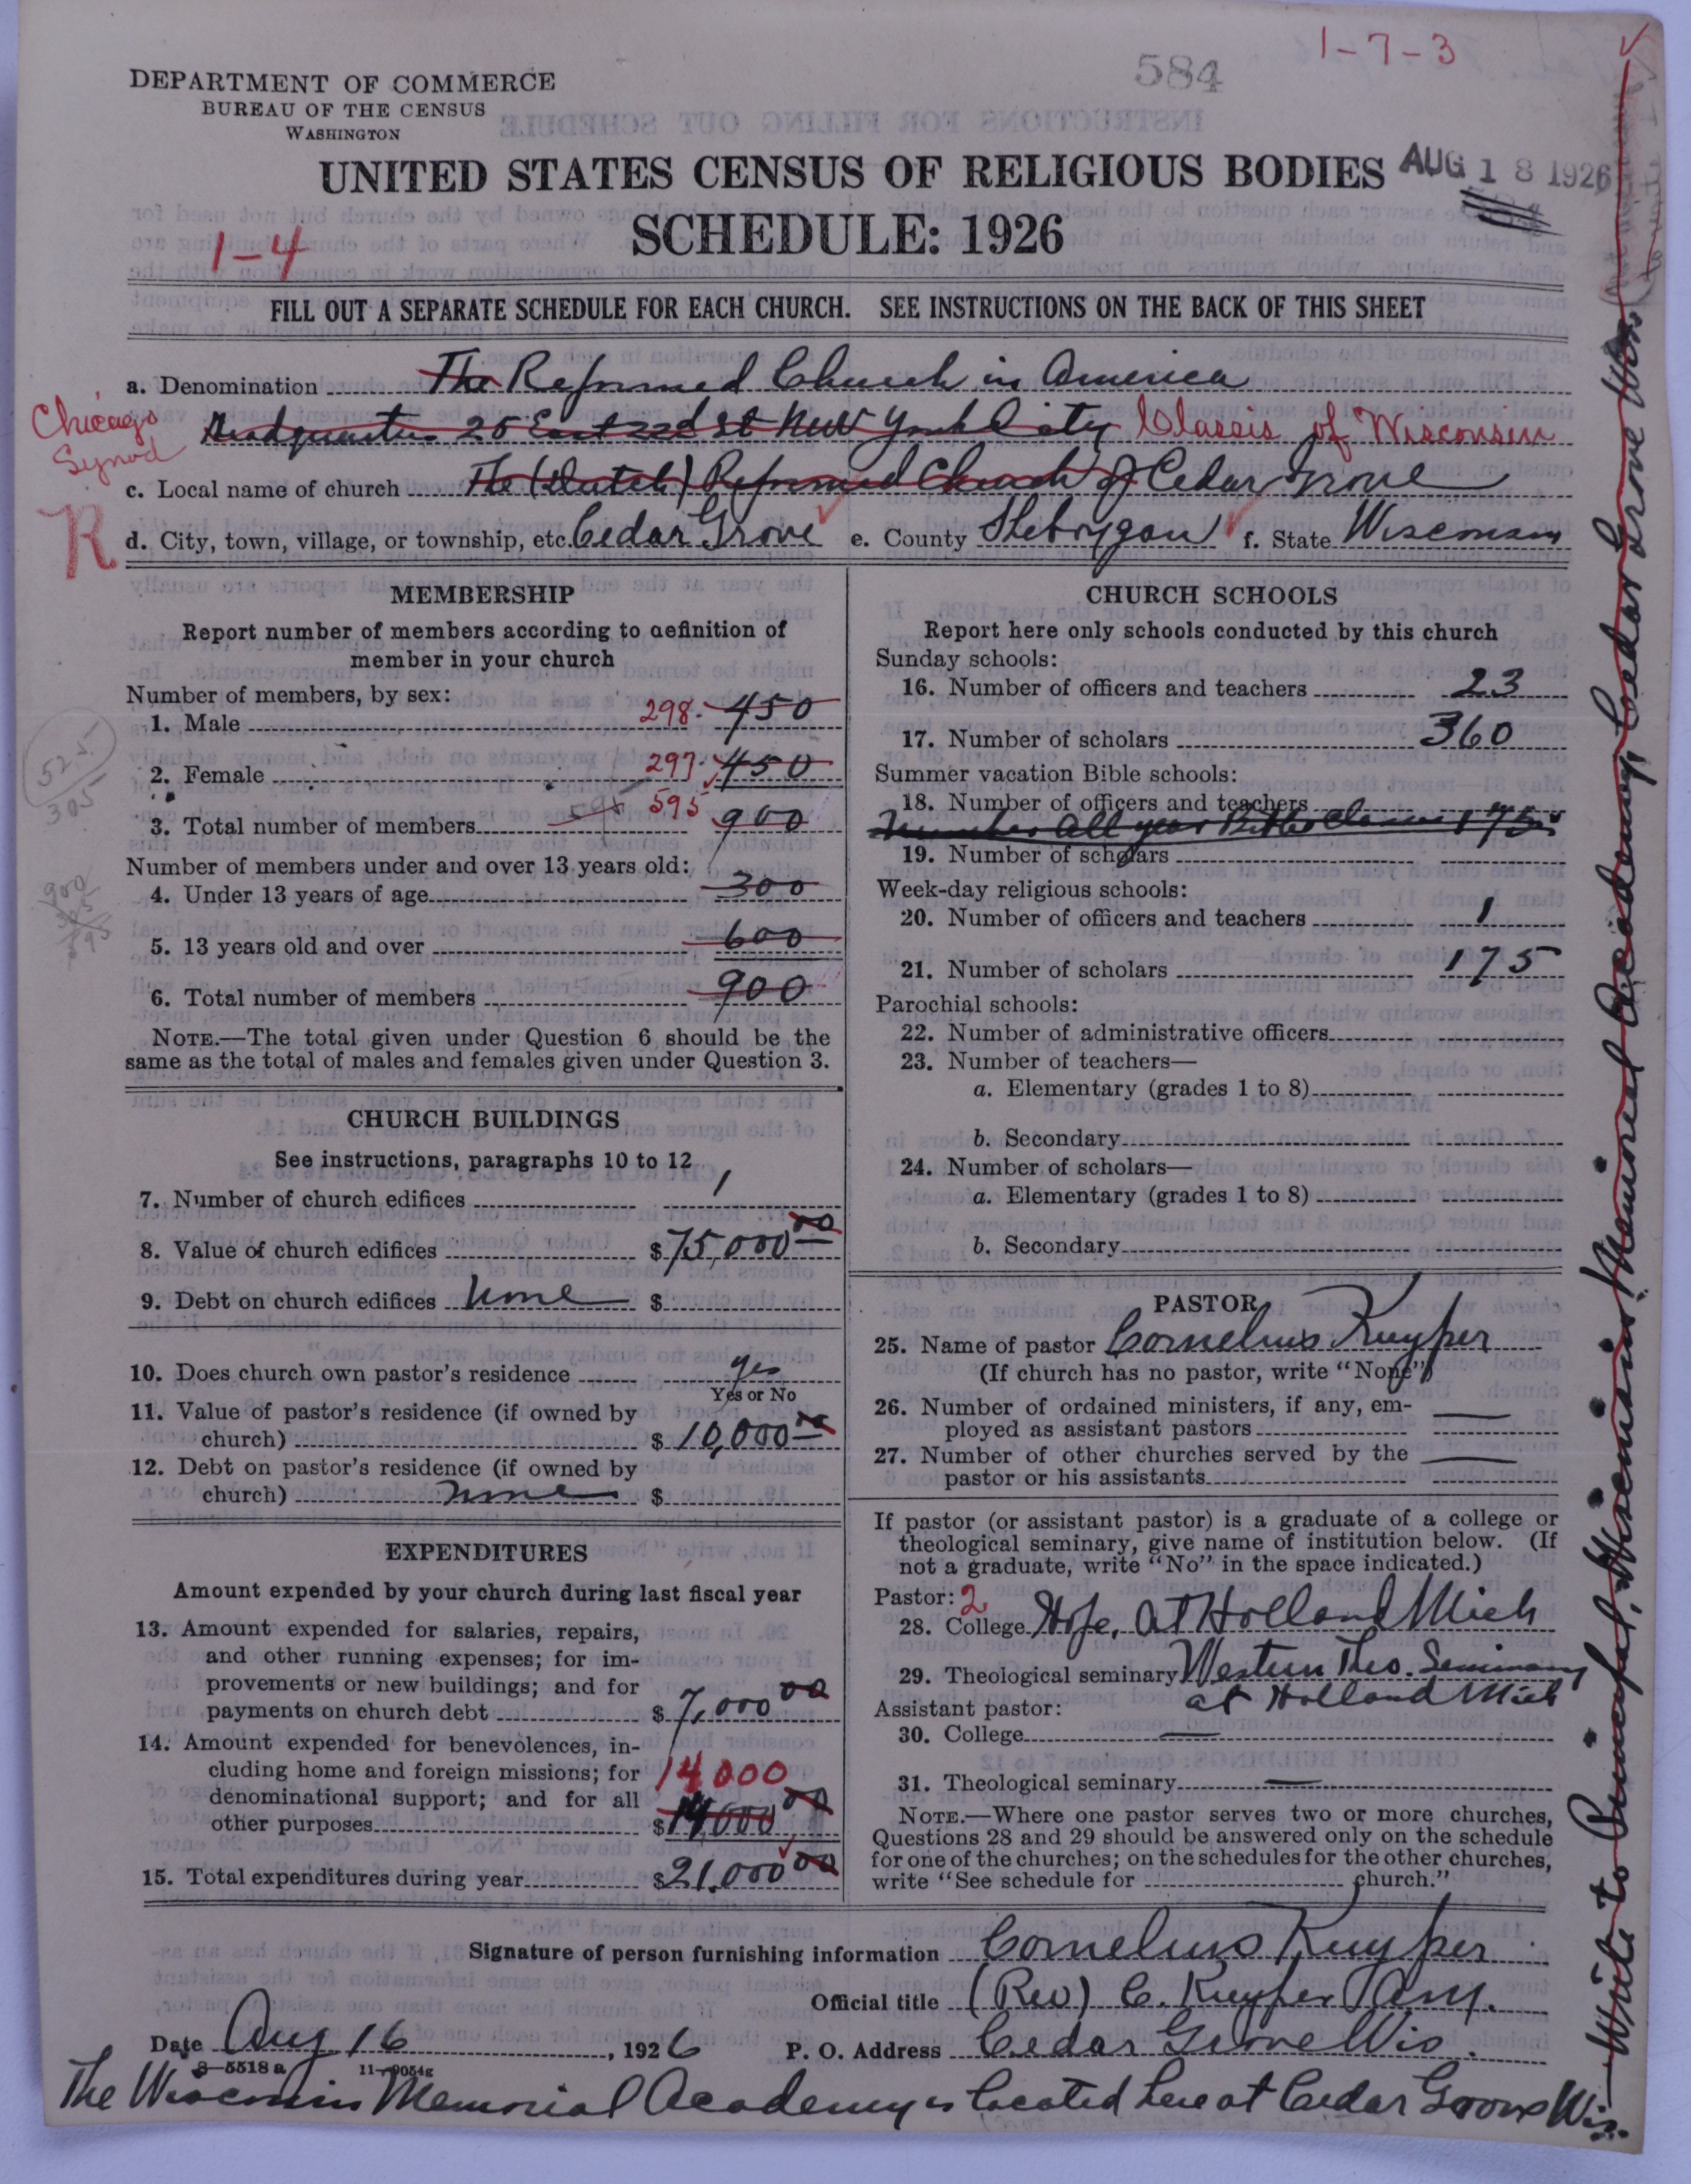 1-7-3
584
DEPARTMENT OF COMMERCE
BUREAU OF THE CENSUS
WASHINGTON
UNITED STATES CENSUS OF RELIGIOUS BODIES
AUG 18 1926
SCHEDULE: 1926
1-4
FILL OUT A SEPARATE SCHEDULE FOR EACH CHURCH. SEE INSTRUCTIONS ON THE BACK OF THIS SHEET
a. Denomination The Reformed Church in America
Chicago Synod
Headquarters 25 East 22d St New York City Classis of Wisconsin
c. Local name of church The (Dutch) Reformed Church of Cedar Grove
R
d. City, town, village, or township, etc. Cedar Grove e. County Sheboygan f. State Wisconsin
MEMBERSHIP
Report number of members according to definition of
member in your church
Number of members, by sex:
1. Male 298 450
2. Female 297 450
525
305
3. Total number of members 595 595 900
Number of members under and over 13 years old:
4. Under 13 years of age 300
900
5. 13 years old and over 600
6. Total number of members 900
NOTE.—The total given under Question 6 should be the
same as the total of males and females given under Question 3.
CHURCH BUILDINGS
See instructions, paragraphs 10 to 12
7. Number of church edifices 1
8. Value of church edifices $75,000 00
9. Debt on church edifices none $
10. Does church own pastor's residence yes
Yes or No
11. Value of pastor's residence (if owned by
church) $ 10,000 00
12. Debt on pastor's residence (if owned by
church) none $
EXPENDITURES
Amount expended by your church during last fiscal year
13. Amount expended for salaries, repairs,
and other running expenses; for im-
provements or new buildings; and for
payments on church debt $ 7,000 00
14. Amount expended for benevolences, in-
cluding home and foreign missions; for 14000
denominational support; and for all
other purposes $14,000 00
15. Total expenditures during year $21,000 00
CHURCH SCHOOLS
Report here only schools conducted by this church
Sunday schools:
16. Number of officers and teachers 23
17. Number of scholars 360
Summer vacation Bible schools:
18. Number of officers and teachers
Number all year Bible Classes 175
19. Number of scholars
Week-day religious schools:
20. Number of officers and teachers 1
21. Number of scholars 175
Parochial schools:
22. Number of administrative officers
23. Number of teachers—
a. Elementary (grades 1 to 8)
b. Secondary
24. Number of scholars—
a. Elementary (grades 1 to 8)
b. Secondary
PASTOR
25. Name of pastor Cornelius Kuyper
(If church has no pastor, write "None")
26. Number of ordained ministers, if any, em-
ployed as assistant pastors —
27. Number of other churches served by the
pastor or his assistants —
If pastor (or assistant pastor) is a graduate of a college or
theological seminary, give name of institution below. (If
not a graduate, write "No" in the space indicated.)
Pastor: 2
28. College Hope, at Holland Mich
29. Theological seminary Western Theo. Seminary
at Holland Mich
Assistant pastor:
30. College —
31. Theological seminary —
NOTE.—Where one pastor serves two or more churches,
Questions 28 and 29 should be answered only on the schedule
for one of the churches; on the schedules for the other churches,
write "See schedule for church."
Signature of person furnishing information Cornelius Kuyper
Official title (Rev) C. Kuyper
Date Aug 16, 1926 P. O. Address Cedar Grove Wis.
8—5518a 11—9054g
The Wisconsin Memorial Academy is located here at Cedar Grove Wis.
Write to Principal, Wisconsin Memorial Academy, Cedar Grove Wis